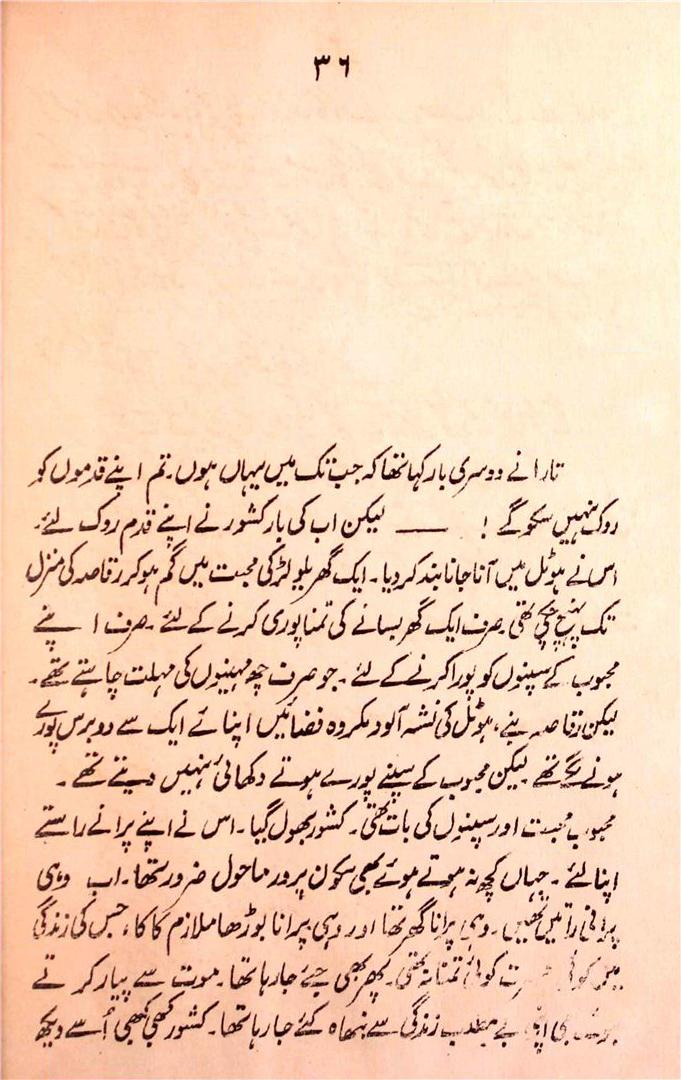 ۳۶
تارا نے دوسری بار کہا تھا کہ جب تک میں یہاں ہوں۔ تم اپنے قدموں کو
روک نہیں سکو گے ! —— لیکن اب کی بار کشور نے اپنے قدم روک لئے۔
اس نے ہوٹل میں آنا جانا بند کر دیا۔ ایک گھریلو لڑکی محبت میں گم ہو کر رقاصہ کی منزل
تک پہنچ چکی تھی۔ صرف ایک گھر بسانے کی تمنا پوری کرنے کے لئے۔ صرف اپنے
محبوب کے سپنوں کو پورا کرنے کے لئے۔ جو صرف چھ مہینوں کی مہلت چاہتے تھے۔
لیکن رقاصہ بنے، ہوٹل کی نشہ آلود مکروہ فضائیں اپنائے ایک سے دو برس پورے
ہونے لگے تھے لیکن محبوب کے سپنے پورے ہوتے دکھائی نہیں دیتے تھے۔
محبوب محبت اور سپنوں کی بات تھی۔ کشور بھول گیا۔ اس نے اپنے پرانے راستے
اپنا لئے۔ جہاں کچھ نہ ہوتے ہوئے بھی سکون پرور ماحول ضرور تھا۔ اب وہی
پرانی راتیں تھیں۔ وہی پرانا گھر تھا اور وہی پرانا بوڑھا ملازم کاکا، جس کی زندگی
میں کوئی حسرت کوئی تمنا نہ تھی۔ پھر بھی جئے جا رہا تھا۔ موت سے پیار کرتے
ہوئے بھی اپنی بے مطلب زندگی سے نباہ کئے جا رہا تھا۔ کشور کبھی کبھی اُسے دیکھ